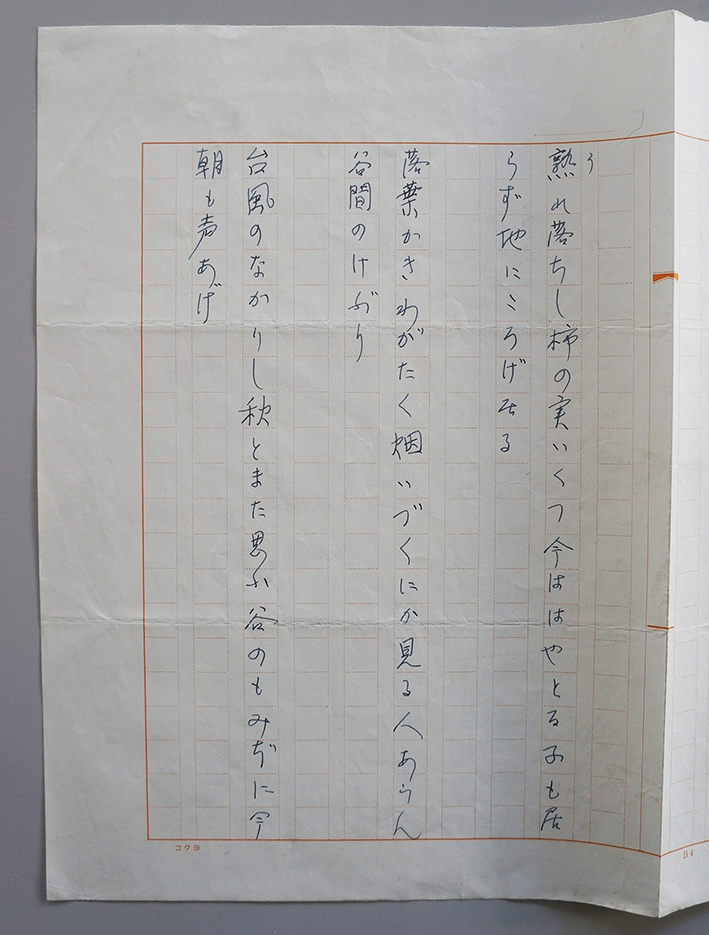 う
熟れ落ちし柿の実いくつ今ははやとる子も居
らず地にころげゐる
落葉かきわがたく烟いづくにか見る人あらん
谷間のけぶり
台風のなかりし秋とまた思ふ谷のもみぢに今
朝も声あげ
コクヨ
B4